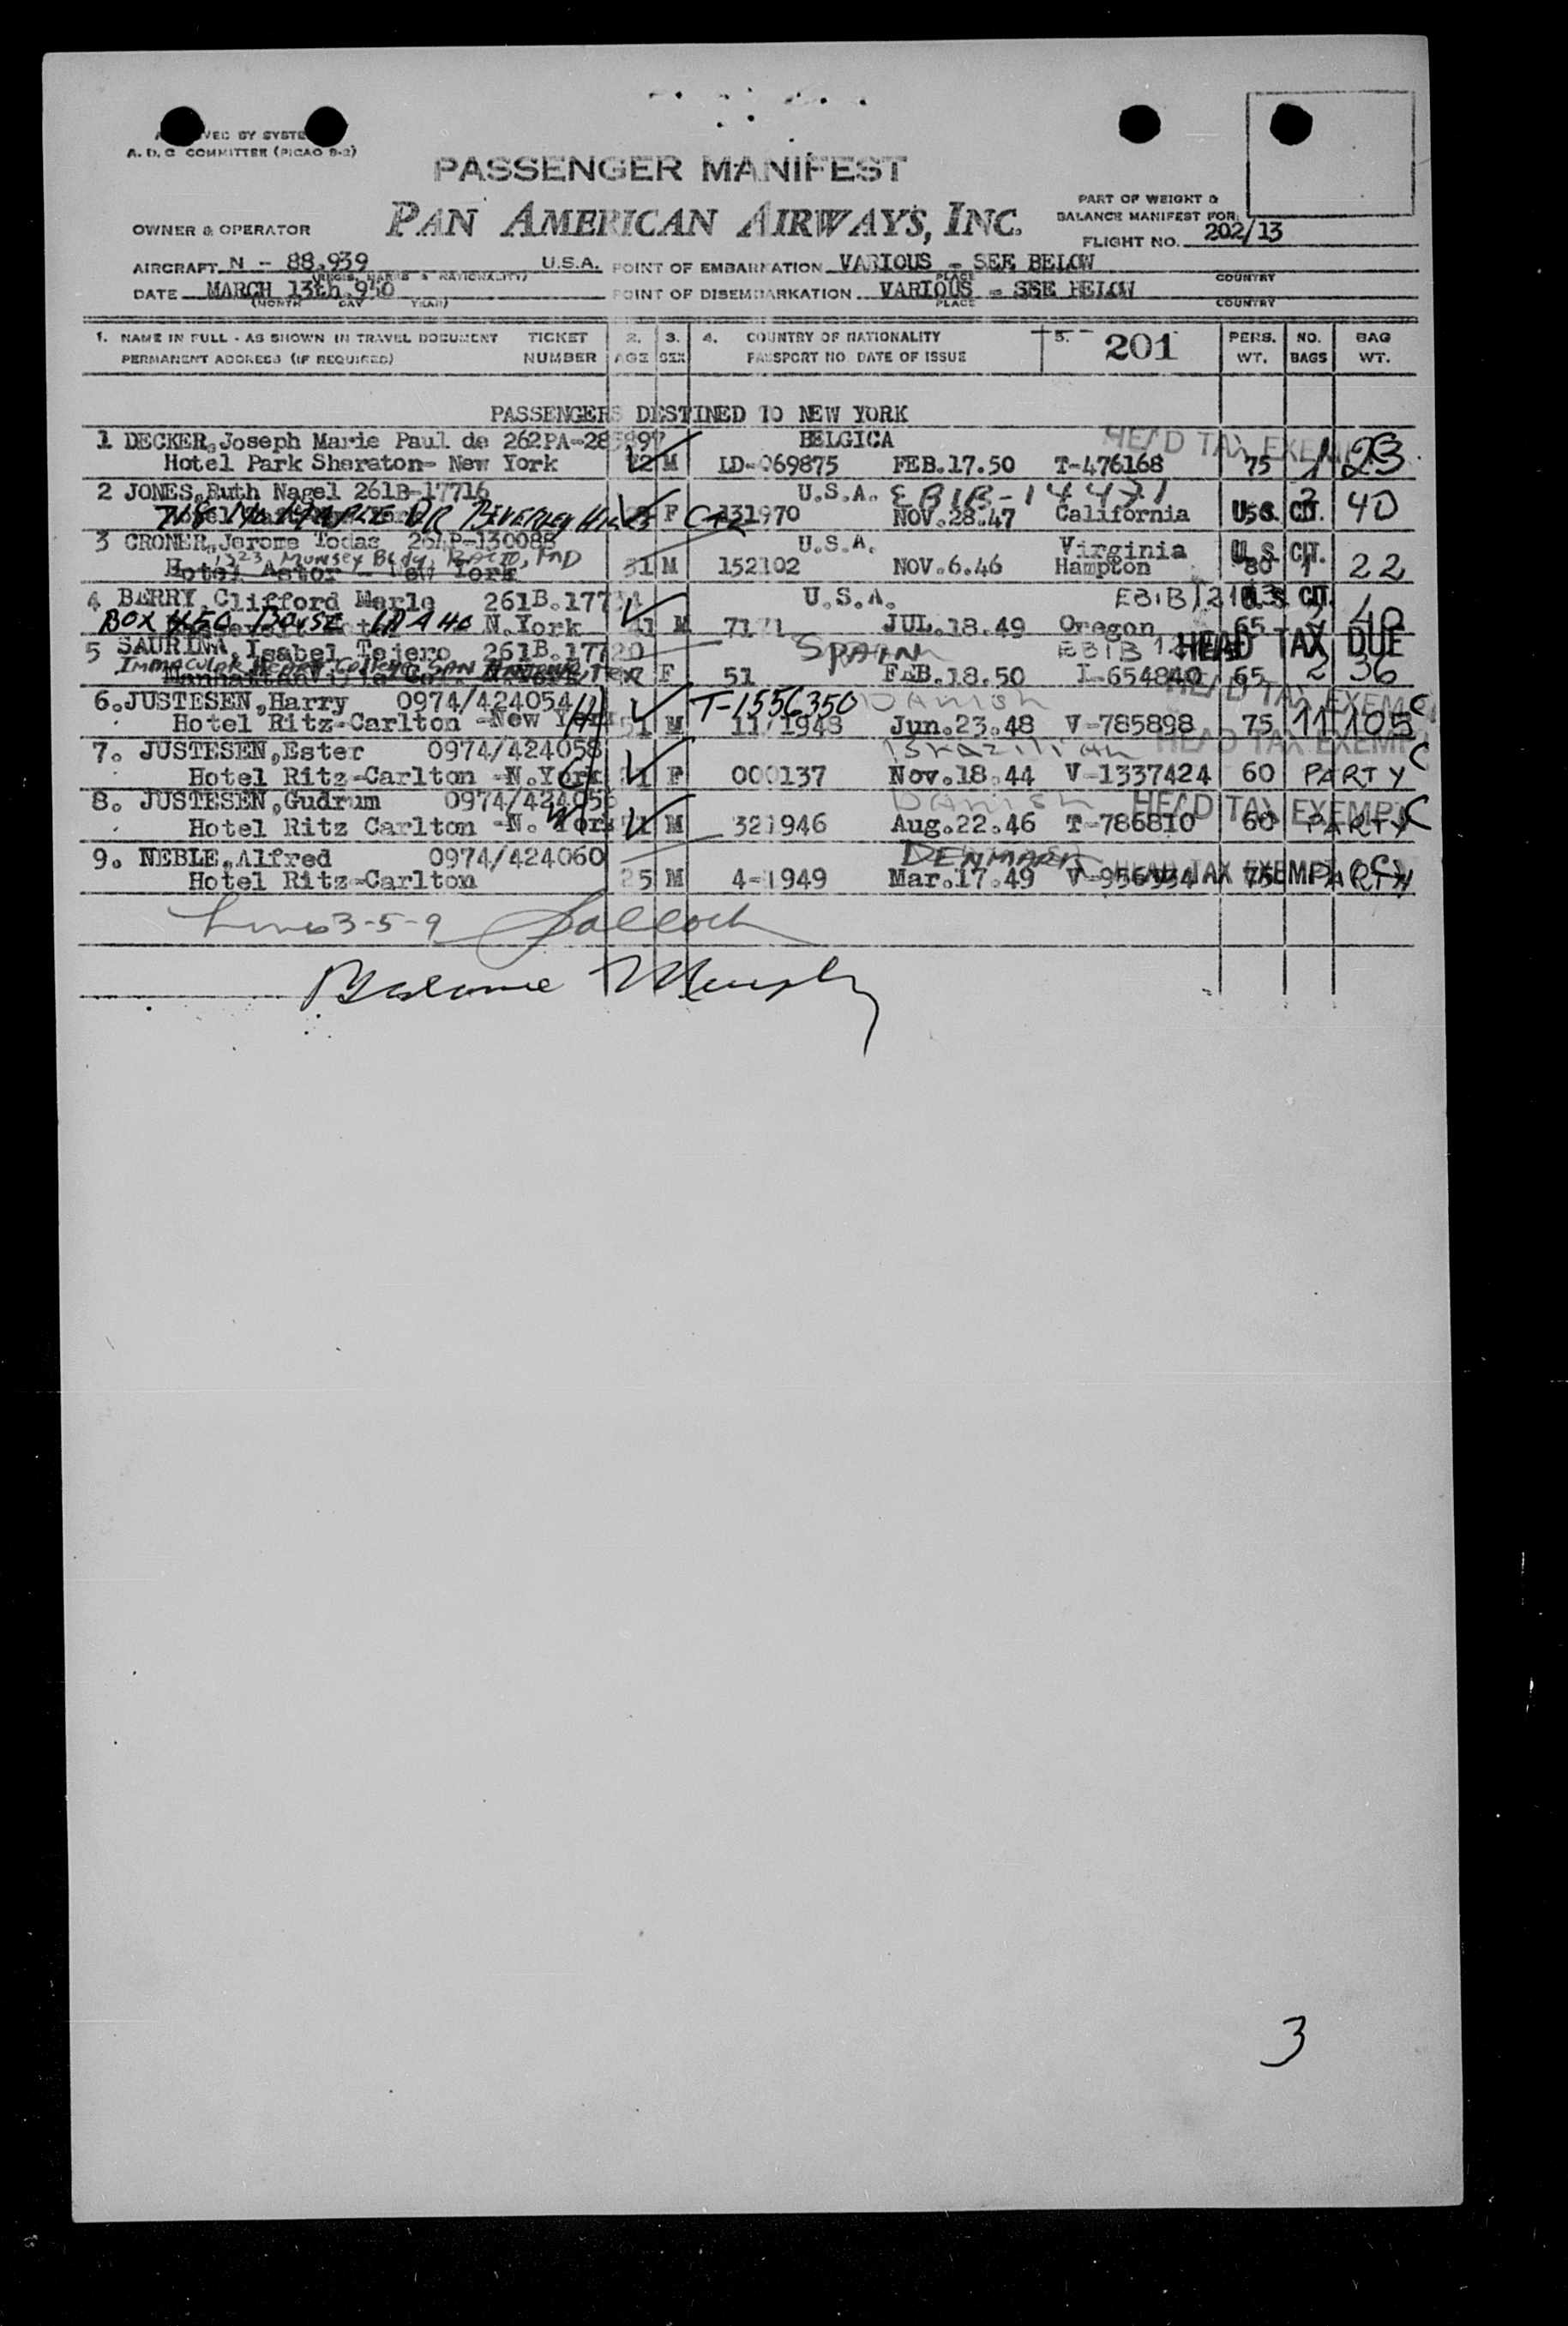 A. D. C. COMMITTEE (PICAO 8-2)
PASSENGER MANIFEST
PAN AMERICAN AIRWAYS, INC.
OWNER & OPERATOR
PART OF WEIGHT &
BALANCE MANIFEST FOR
FLIGHT NO. 202/13
AIRCRAFT N - 88,939 U.S.A. POINT OF EMBARKATION VARIOUS - SEE BELOW
PLACE COUNTRY
DATE MARCH 13th, 950 POINT OF DISEMBARKATION VARIOUS - SEE BELOW
(MONTH DAY YEAR) PLACE COUNTRY
1. NAME IN FULL - AS SHOWN IN TRAVEL DOCUMENT TICKET 2. 3. 4. COUNTRY OF NATIONALITY 5. 201 PERS. NO. BAG
PERMANENT ADDRESS (IF REQUIRED) NUMBER AGE SEX PASSPORT NO DATE OF ISSUE WT. BAGS WT.
PASSENGERS DESTINED TO NEW YORK
1 DECKER, Joseph Marie Paul de BELGICA HEAD TAX EXEMPT
Hotel Park Sheraton- New York M LD-069875 FEB.17.50 T-476168 75 1 23
2 JONES, Ruth Nagel 261B-17716 U.S.A. EBIB-14471
DR BEVERLEY HILLS F 131970 NOV.28.47 California U.S. CIT. 40
3 CRONER, Jerome Todas U.S.A. Virginia
1323 Munsey Bldg, BALTO, MD
Hotel Astor - New York 31 M 152102 NOV.6.46 Hampton U.S. CIT. 80 1 22
4 BERRY, Clifford Merle U.S.A. EBIB U.S. CIT.
BOX BOISE IDAHO N.York M JUL.18.49 Oregon 65 40
5 SAURINA, Isabel Tejero 261B.17720 SPAIN EBIB HEAD TAX DUE
SAN ANTONIO, TEX F 51 FEB.18.50 I-654840 65 2 36
6. JUSTESEN, Harry 0974/424054 T-1556350 DANISH HEAD TAX EXEMPT
Hotel Ritz-Carlton -New York M 11/1948 Jun.23.48 V-785898 75 11 105
7. JUSTESEN, Ester 0974/424058 Brazilian HEAD TAX EXEMPT
Hotel Ritz-Carlton -N.York F 000137 Nov.18.44 V-1337424 60 PARTY
8. JUSTESEN, Gudrum 0974/424056 DANISH HEAD TAX EXEMPT
Hotel Ritz Carlton -N. York M 321946 Aug.22.46 T-786810 60 PARTY
9. NEBLE, Alfred 0974/424060 DENMARK HEAD TAX EXEMPT
Hotel Ritz-Carlton 25 M 4-1949 Mar.17.49 V-956934 75 PARTY
Lines 3-5-9
Balance Murphy
3